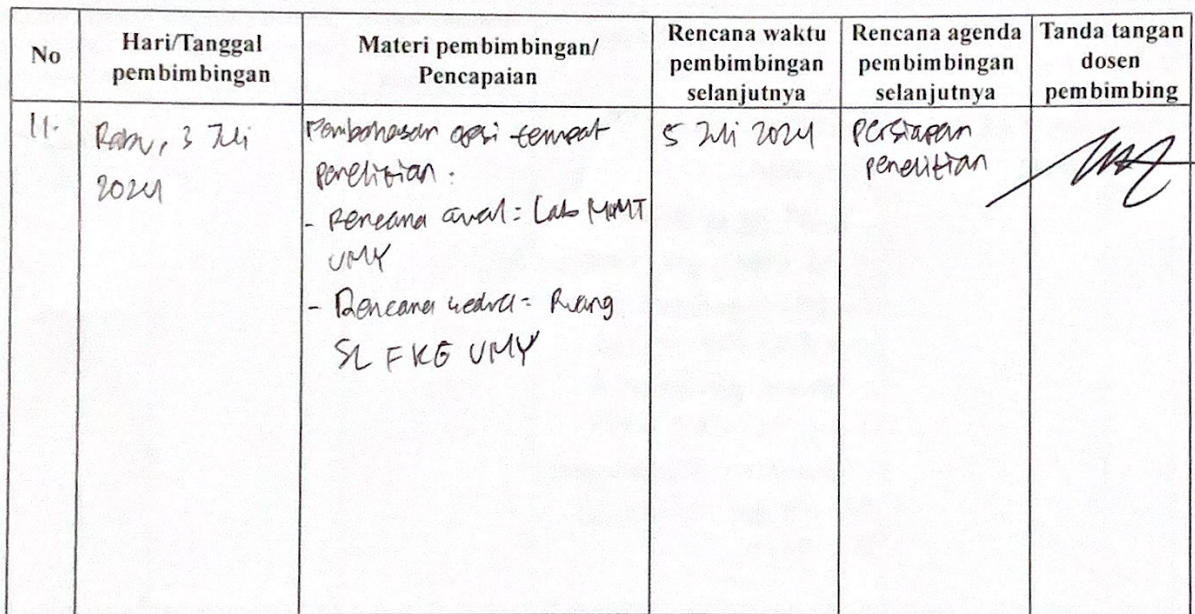 No
Hari/Tanggal
pembimbingan
Materi pembimbingan/
Pencapaian
Rencana waktu
pembimbingan
selanjutnya
Rencana agenda
pembimbingan
selanjutnya
Tanda tangan
dosen
pembimbing
11.
Rabu, 3 Juli
2024
Pembahasan opsi tempat
penelitian :
- Rencana awal = Lab
UMY
- Rencana kedua = Ruang
SL FKG UMY
5 Juli 2024
Persiapan
penelitian